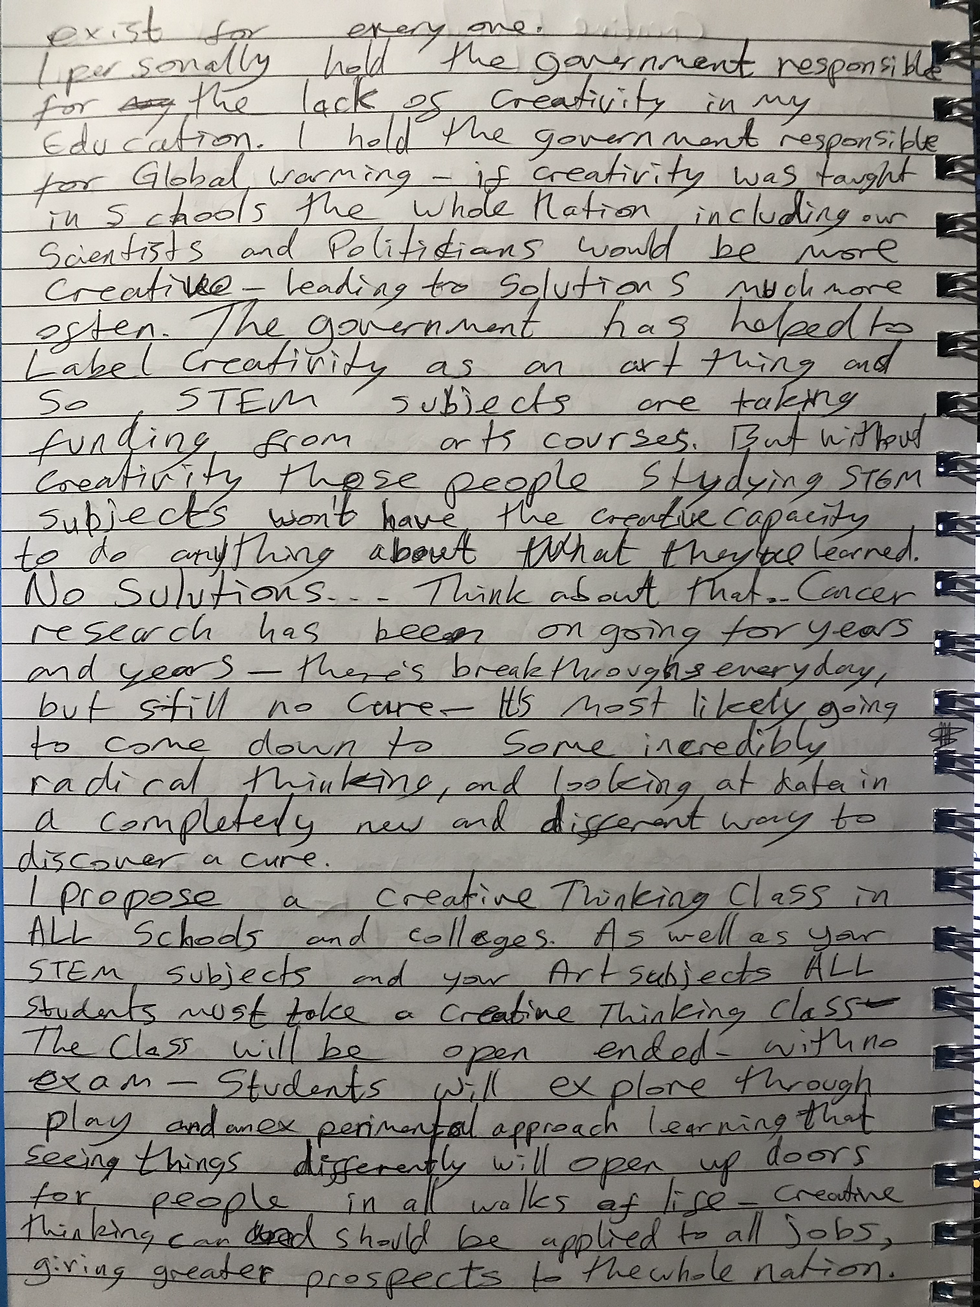 exist for every one.
I personally hold the government responsible
for the lack of creativity in my
Education. I hold the government responsible
for Global warming - if creativity was taught
in schools the whole Nation including our
Scientists and Politicians would be more
Creative - leading to solutions much more
often. The government has helped to
Label Creativity as an art thing and
so STEM subjects are taking
funding from arts courses. But without
creativity those people studying STEM
subjects won't have the creative capacity
to do anything about what they've learned.
No solutions... Think about that.. Cancer
research has been on going for years
and years - there's breakthroughs everyday,
but still no cure - It's most likely going
to come down to some incredibly
radical thinking, and looking at data in
a completely new and different way to
discover a cure.
I propose a creative Thinking Class in
ALL Schools and colleges. As well as your
STEM subjects and your Art subjects ALL
students must take a Creative Thinking Class -
The Class will be open ended - with no
exam - Students will explore through
play and an experimental approach learning that
seeing things differently will open up doors
for people in all walks of life - creative
thinking can and should be applied to all jobs,
giving greater prospects to the whole nation.